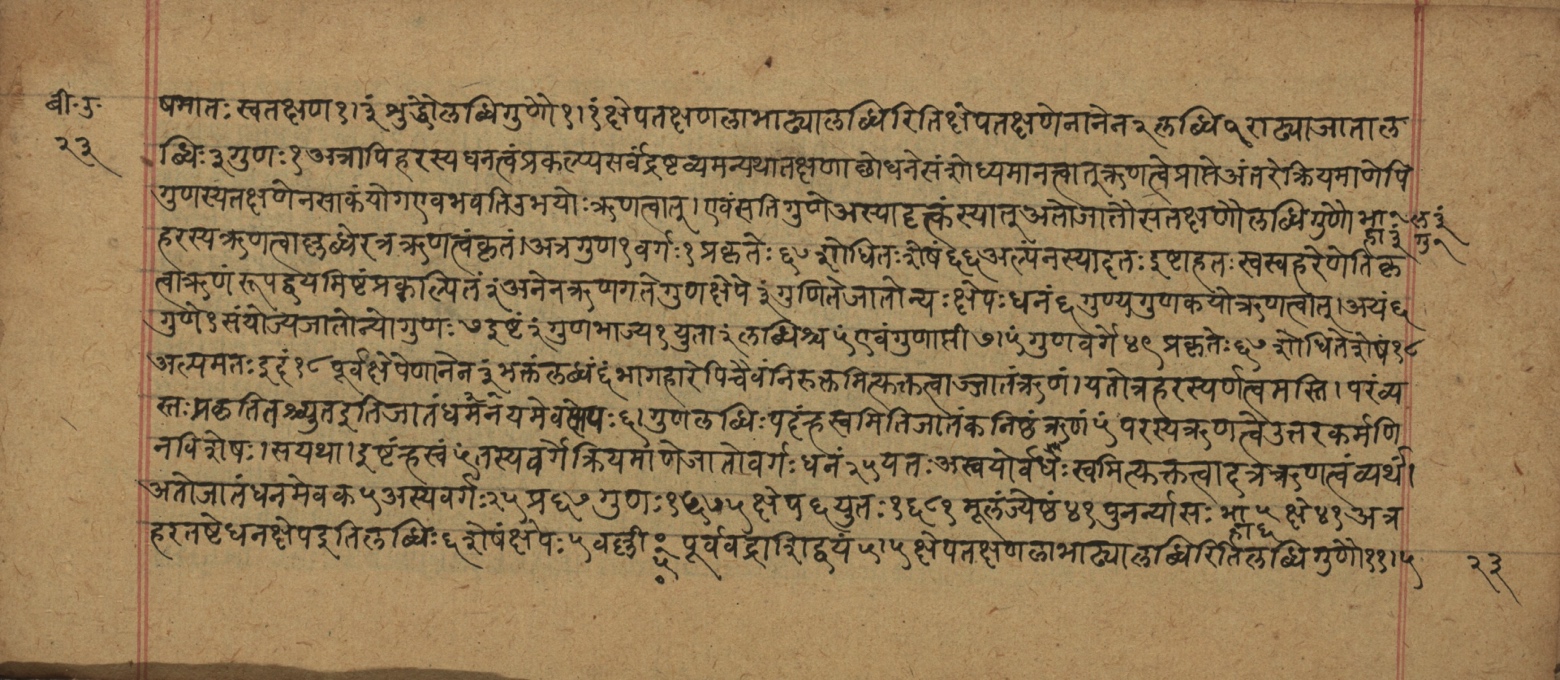 बी॰गु॰
२३
षमातः स्वतक्षण १।३ं शुद्धौ लब्धिगुणौ १।१ं क्षेपतक्षणलाभाढ्या लब्धिरिति क्षेपतक्षणेनानेन २ लब्धि १ राढ्या जाता ल
ब्धिः ३ गुणः १ अत्रापि हरस्य धनत्वं प्रकल्प्य सर्वं द्रष्टव्यमन्यथा तक्षणाच्छोधने संशोध्यमानत्वात् ऋणत्वे प्राप्ते अंतरे क्रियमाणेपि
गुणस्य तक्षणेन साकं योग एव भवति उभयोः ऋणत्वात्। एवं सति गुणे अस्पादृत्कं स्यात् अतो जातौ सतक्षणौ लब्धिगुणौ
हरस्य ऋणत्वाल्लब्धेरत्र ऋणत्वं कृतं। अत्र गुण १ वर्गः १ प्रकृतेः ६७ शोधितः शेषं ६६ अल्पं न स्यादतः इष्टाहतः स्वस्वहरेणेति कृ
त्वा ऋणं रूपद्वयमिष्टं प्रकाल्पितं २ं अनेन ऋणगते गुणक्षेपे ३ं गुणिते जातोन्यः क्षेपः धनं ६ गुण्यगुणकयोऋणत्वात्। अयं ६
गुणे १ संयोज्य जातोन्यो गुणः ७ इष्टं २ं गुणभाज्य १ युता ३ लब्धिश्च ५ एवं गुणाप्ती ७।५ं गुणवर्गे ४९ प्रकृतेः ६७ शोधिते शेषं १८
अल्पमतः इदं १८ पूर्वक्षेपेणानेन ३ं भक्तं लब्धं ६ं भागहारेपि चैवं निरुक्तमित्युक्तत्वाज्जातं ऋणं। यतोत्र हरस्यर्णत्वमस्ति। परं व्य
स्तः प्रकृतितश्च्युत इति जातं धनमेनयमेव क्षेपः ६। गुणलब्धिः पदं ह्रस्वमिति जातं कनिष्ठं ऋणं ५ं परस्य ऋणत्वे उत्तरकर्मणि
न विशेषः। स यथा। इष्टं ह्रस्वं ५ं तस्य वर्गे क्रियमाणे जातो वर्गः धनं २५ यतः अस्वयोर्वधः स्वमित्युक्तत्वादत्र ऋणत्वं व्यर्थं।
अतो जातं धनमेव क ५ अस्य वर्गः २५ प्र ६७ गुणः १६७५ क्षेप ६ युतः १६८१ मूलं ज्येष्ठं ४१ पुनर्न्यासः भा ५ हा ६ क्षे ४१ अत्र
हरतष्टे धनक्षेप इति लब्धिः ६ शेषं क्षेपः ५ वल्ली पूर्ववद्राशिद्वयं ५।५ क्षेपतक्षणलाभाढ्या लब्धिरिति लब्धिगुणौ ११।५
२३